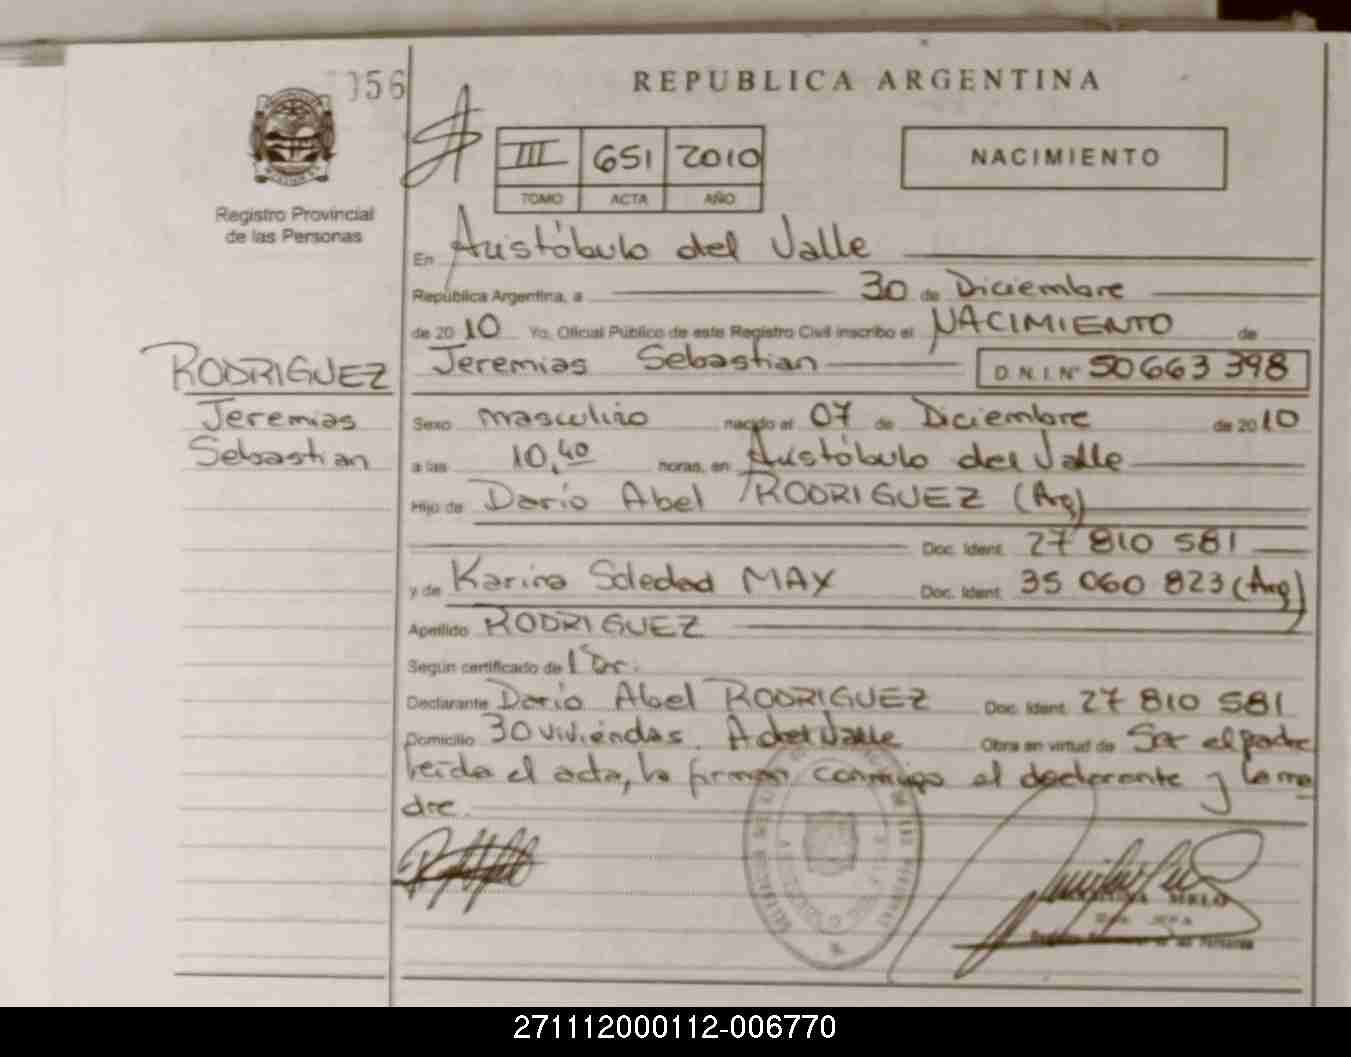 056
REPUBLICA ARGENTINA
III 651 2010
TOMO ACTA AÑO
NACIMIENTO
Registro Provincial
de las Personas
En Aristóbulo del Valle
República Argentina, a 30 de Diciembre
de 2010 Yo, Oficial Público de este Registro Civil inscribo el NACIMIENTO de
Jeremias Sebastian D.N.I.Nº 50663 398
RODRIGUEZ
Jeremias
Sebastian
Sexo masculino nacido el 07 de Diciembre de 2010
a las 10,40 horas, en Aristóbulo del Valle
Hijo de Darío Abel RODRIGUEZ (Arg)
Doc. Ident. 27 810 581
y de Karina Soledad MAX Doc. Ident. 35 060 823 (Arg)
Apellido RODRIGUEZ
Según certificado de 1 Dr.
Declarante Darío Abel RODRIGUEZ Doc. Ident. 27 810 581
Domicilio 30 viviendas. A del Valle Obra en virtud de Ser el padre
leída el acta, la firman conmigo el declarante y la ma
dre.
MELO
271112000112-006770